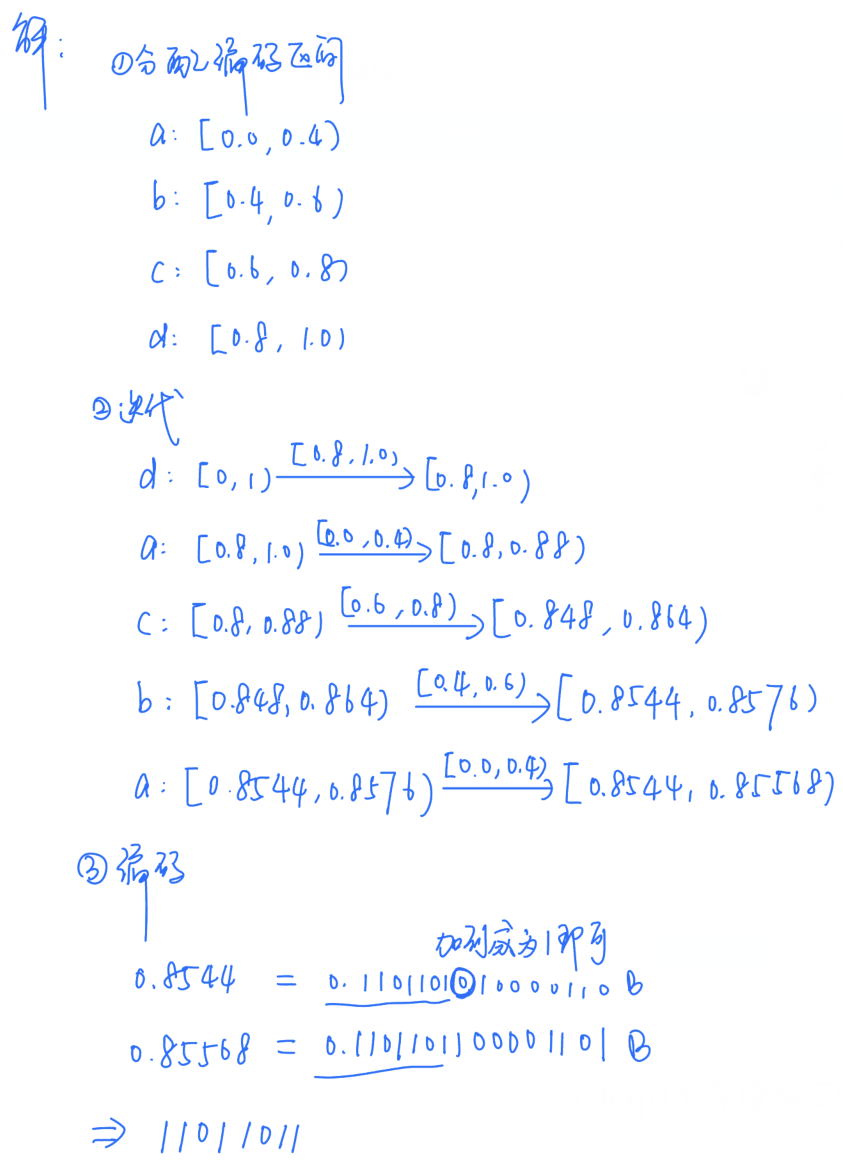 解:
①分配编码区间
a: [0.0, 0.4)
b: [0.4, 0.6)
c: [0.6, 0.8)
d: [0.8, 1.0)
②迭代
d: [0, 1) [0.8, 1.0) → [0.8, 1.0)
a: [0.8, 1.0) [0.0, 0.4) → [0.8, 0.88)
c: [0.8, 0.88) [0.6, 0.8) → [0.848, 0.864)
b: [0.848, 0.864) [0.4, 0.6) → [0.8544, 0.8576)
a: [0.8544, 0.8576) [0.0, 0.4) → [0.8544, 0.85568)
③编码
加到成为1即可
0.8544 = 0.1101101010000110 B
0.85568 = 0.1101101100001101 B
⇒ 11011011